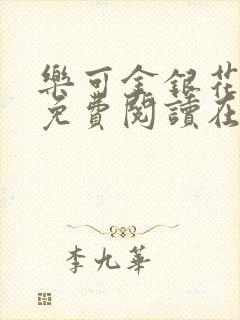 樂可金銀花
免費閱讀在
李九華